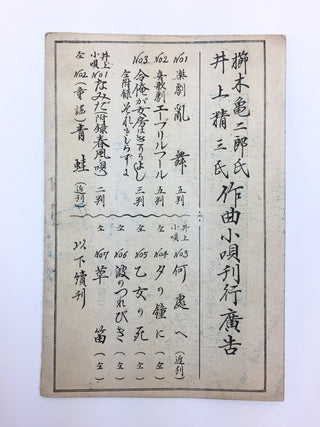 櫛木亀二郎氏
井上猜三氏
作曲小唄刊行廣告
No1 楽劇 亂舞 五判
No2 喜歌劇 エープリルフール 五判
No3 今俺が女房はきりりよし 三判
井上小唄 No1 なみだ(附録春風唄) 二判
仝 No2 童謡) 青蛙 (近刊)
井上小唄 No3 何處へ (近刊)
仝 No4 夕の鐘に (仝)
仝 No5 乙女の死 (仝)
仝 No6 波のつれびき (仝)
仝 No7 草笛 (仝)
以下續刊